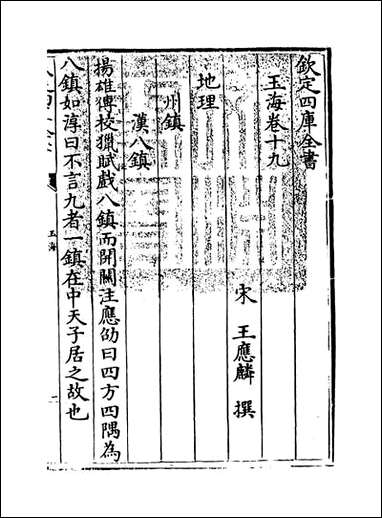 欽定四庫全書
玉海卷十九
宋 王應麟 撰
地理
州鎮
漢八鎮
揚雄傳校獵賦戲八鎮而開關注應劭曰四方四隅為
八鎮如淳曰不言九者一鎮在中天子居之故也
玉海
一